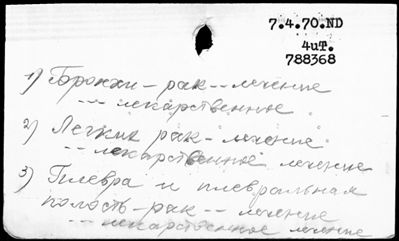 7.4.70.ND
4иТ.
788368
1) Бронхи - рак -- лечение
-- лекарственное
2) Легкие рак - лечение
-- лекарственное лечение
3) Плевра и плевральная
полость - рак -- лечение
-- лекарственное лечение